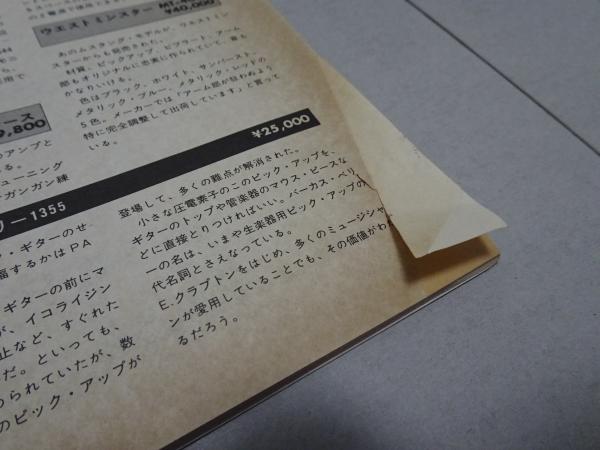 ウエストミンスター
¥40,000
あのムスタング・モデルが、ウエストミン
スターからも発売された。
材質、ピックアップ、ビブラート、アーム
部もオリジナルに忠実に作られていて、音も
かなりいける。
色はブラック、ホワイト、サンバースト、
メタリック・ブルー、メタリック・レッドの
5色。メーカーでは「アーム部が狂わぬよう
特に完全調整して出荷しています」と言って
いる。
ース
9,800
のアンプと
る。
ューニング
ガンガン練
リー1355
¥25,000
・ギターのせ
幅するかはPA
ギターの前にマ
が、イコライジン
止など、すぐれた
だ。といっても、
められていたが、数
のピック・アップが
登場して、多くの難点が解消された。
小さな圧電素子のこのピック・アップを、
ギターのトップや管楽器のマウス・ピースな
どに直接とりつければいい。バーカス・ベリ
ーの名は、いまや生楽器用ピック・アップの
代名詞とさえなっている。
E.クラプトンをはじめ、多くのミュージシャ
ンが愛用していることでも、その価値がわ
るだろう。